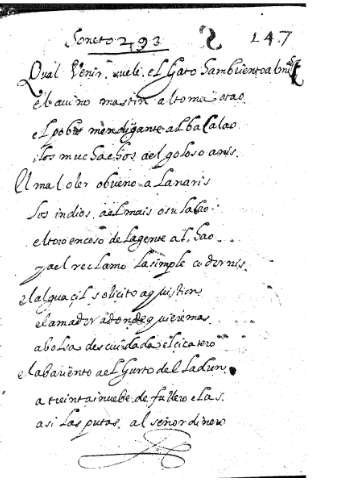 Soneto 293 S 147
Qual Venir suele el Gato hambriento al
el bovino mastin al toma otao
el pobre mendigante al bacalao
i los muchachos ael goloso anis
El mal oler o bueno a la naris
los indios ael mais o su
el toro enceso de la gente al hao
y ael reclamo la simple codornis
el alguacil solicito a quistion
el amador adonde quiere mas
a bolsa descuidada el cicatero
el abariento ael Gurto del Ladron
a treinta i nuebe de fullero el as
asi las putas al señor dinero